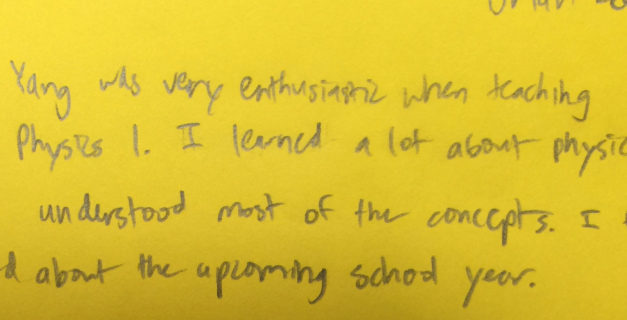 Yang was very enthusiastic when teaching
Physics 1. I learned a lot about physic
understood most of the concepts. I
d about the upcoming school year.